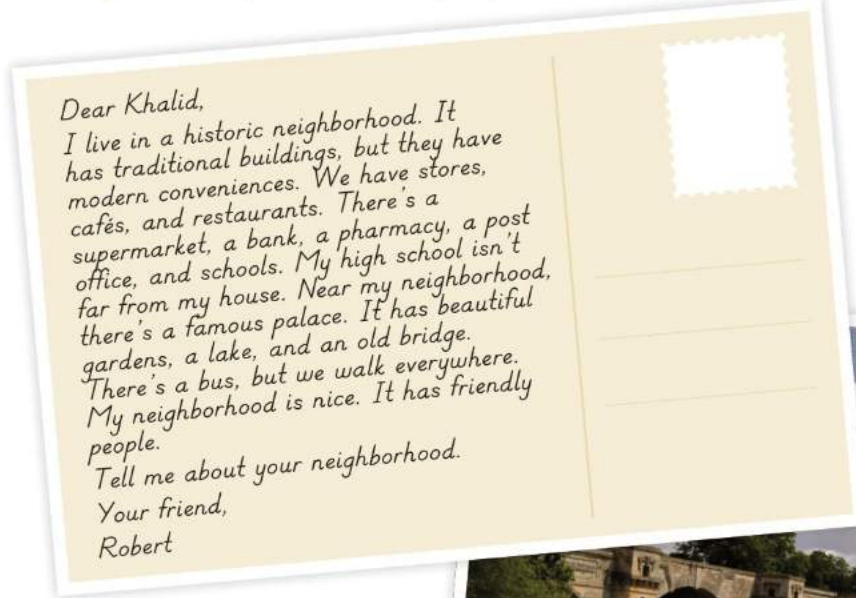 Dear Khalid,
I live in a historic neighborhood. It
has traditional buildings, but they have
modern conveniences. We have stores,
cafés, and restaurants. There's a
supermarket, a bank, a pharmacy, a post
office, and schools. My high school isn't
far from my house. Near my neighborhood,
there's a famous palace. It has beautiful
gardens, a lake, and an old bridge.
There's a bus, but we walk everywhere.
My neighborhood is nice. It has friendly
people.
Tell me about your neighborhood.
Your friend,
Robert